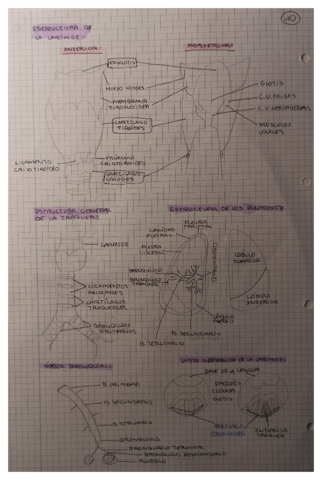 10
ESTRUCTURA DE
LA LARINGE:
ANTERIOR
POSTERIOR
EPIGLOTIS
HUESO HIOIDES
MEMBRANA
TIROHIOIDEA
CARTÍLAGO
TIROIDES
GLOTIS
C.V. FALSAS
C.V. VERDADERAS
MÚSCULOS
VOCALES
LIGAMENTO
CRICOTIROIDEO
MÚSCULO
CRICOTIROIDEO
CARTÍLAGO
CRICOIDES
ESTRUCTURA GENERAL
DE LA TRÁQUEA
LARINGE
LIGAMENTOS
ANULARES
CARTÍLAGOS
TRAQUEALES
BRONQUIOS
PRIMARIOS
ESTRUCTURA DE LOS PULMONES
PLEURA
PARIETAL
CAVIDAD
PLEURAL
PLEURA
VISCERAL
BRONQUIOLO
LÓBULO
SUPERIOR
LÓBULO
INFERIOR
LÓBULO
MEDIO
B. SECUNDARIO
B. TERCIARIO
ÁRBOL BRONQUIAL
B. PRIMARIO
B. SECUNDARIO
B. TERCIARIO
BRONQUIOLO
BRONQUIOLO TERMINAL
BRONQUIOLO RESPIRATORIO
ALVEOLO
BASE DE LA LENGUA
EPIGLOTIS
CUERDAS
GLOTIS